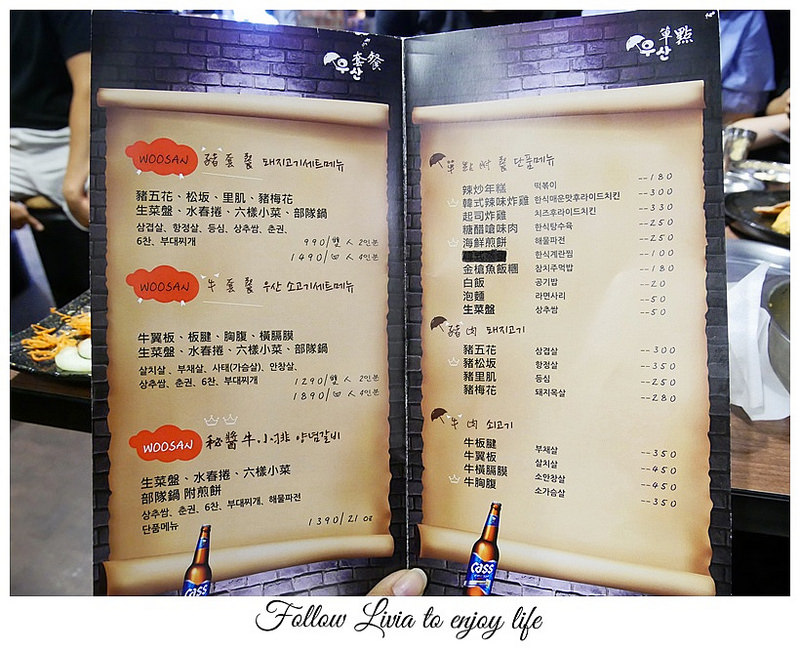 우산 套餐
WOOSAN 豬套餐 돼지고기세트메뉴
豬五花、松坂、里肌、豬梅花
生菜盤、水春捲、六樣小菜、部隊鍋
삼겹살, 항정살, 등심, 상추쌈, 춘권,
6찬, 부대찌개 990/雙人 2인분
1490/四人 4인분
WOOSAN 牛套餐 우산 소고기세트메뉴
牛翼板、板腱、胸腹、橫膈膜
生菜盤、水春捲、六樣小菜、部隊鍋
살치살, 부채살, 사태(가슴살), 안창살,
상추쌈, 춘권, 6찬, 부대찌개 1290/雙人 2인분
1890/四人 4인분
WOOSAN 秘醬牛小排 양념갈비
生菜盤、水春捲、六樣小菜
部隊鍋 附煎餅
상추쌈, 춘권, 6찬, 부대찌개, 해물파전
단품메뉴 1390/21oz
cass
우산 單點
單點附餐 단품메뉴
辣炒年糕 떡볶이 --180
韓式辣味炸雞 한식매운맛후라이드치킨 --300
起司炸雞 치즈후라이드치킨 --330
糖醋嗆味肉 한식탕수육 --250
海鮮煎餅 해물파전 --250
한식계란찜 --100
金槍魚飯糰 참치주먹밥 --180
白飯 공기밥 --20
泡麵 라면사리 --50
生菜盤 상추쌈 --50
豬肉 돼지고기
豬五花 삼겹살 --300
豬松坂 항정살 --350
豬里肌 등심 --250
豬梅花 돼지목살 --280
牛肉 쇠고기
牛板腱 부채살 --350
牛翼板 살치살 --450
牛橫膈膜 소안창살 --450
牛胸腹 소가슴살 --350
cass
Follow Livia to enjoy life